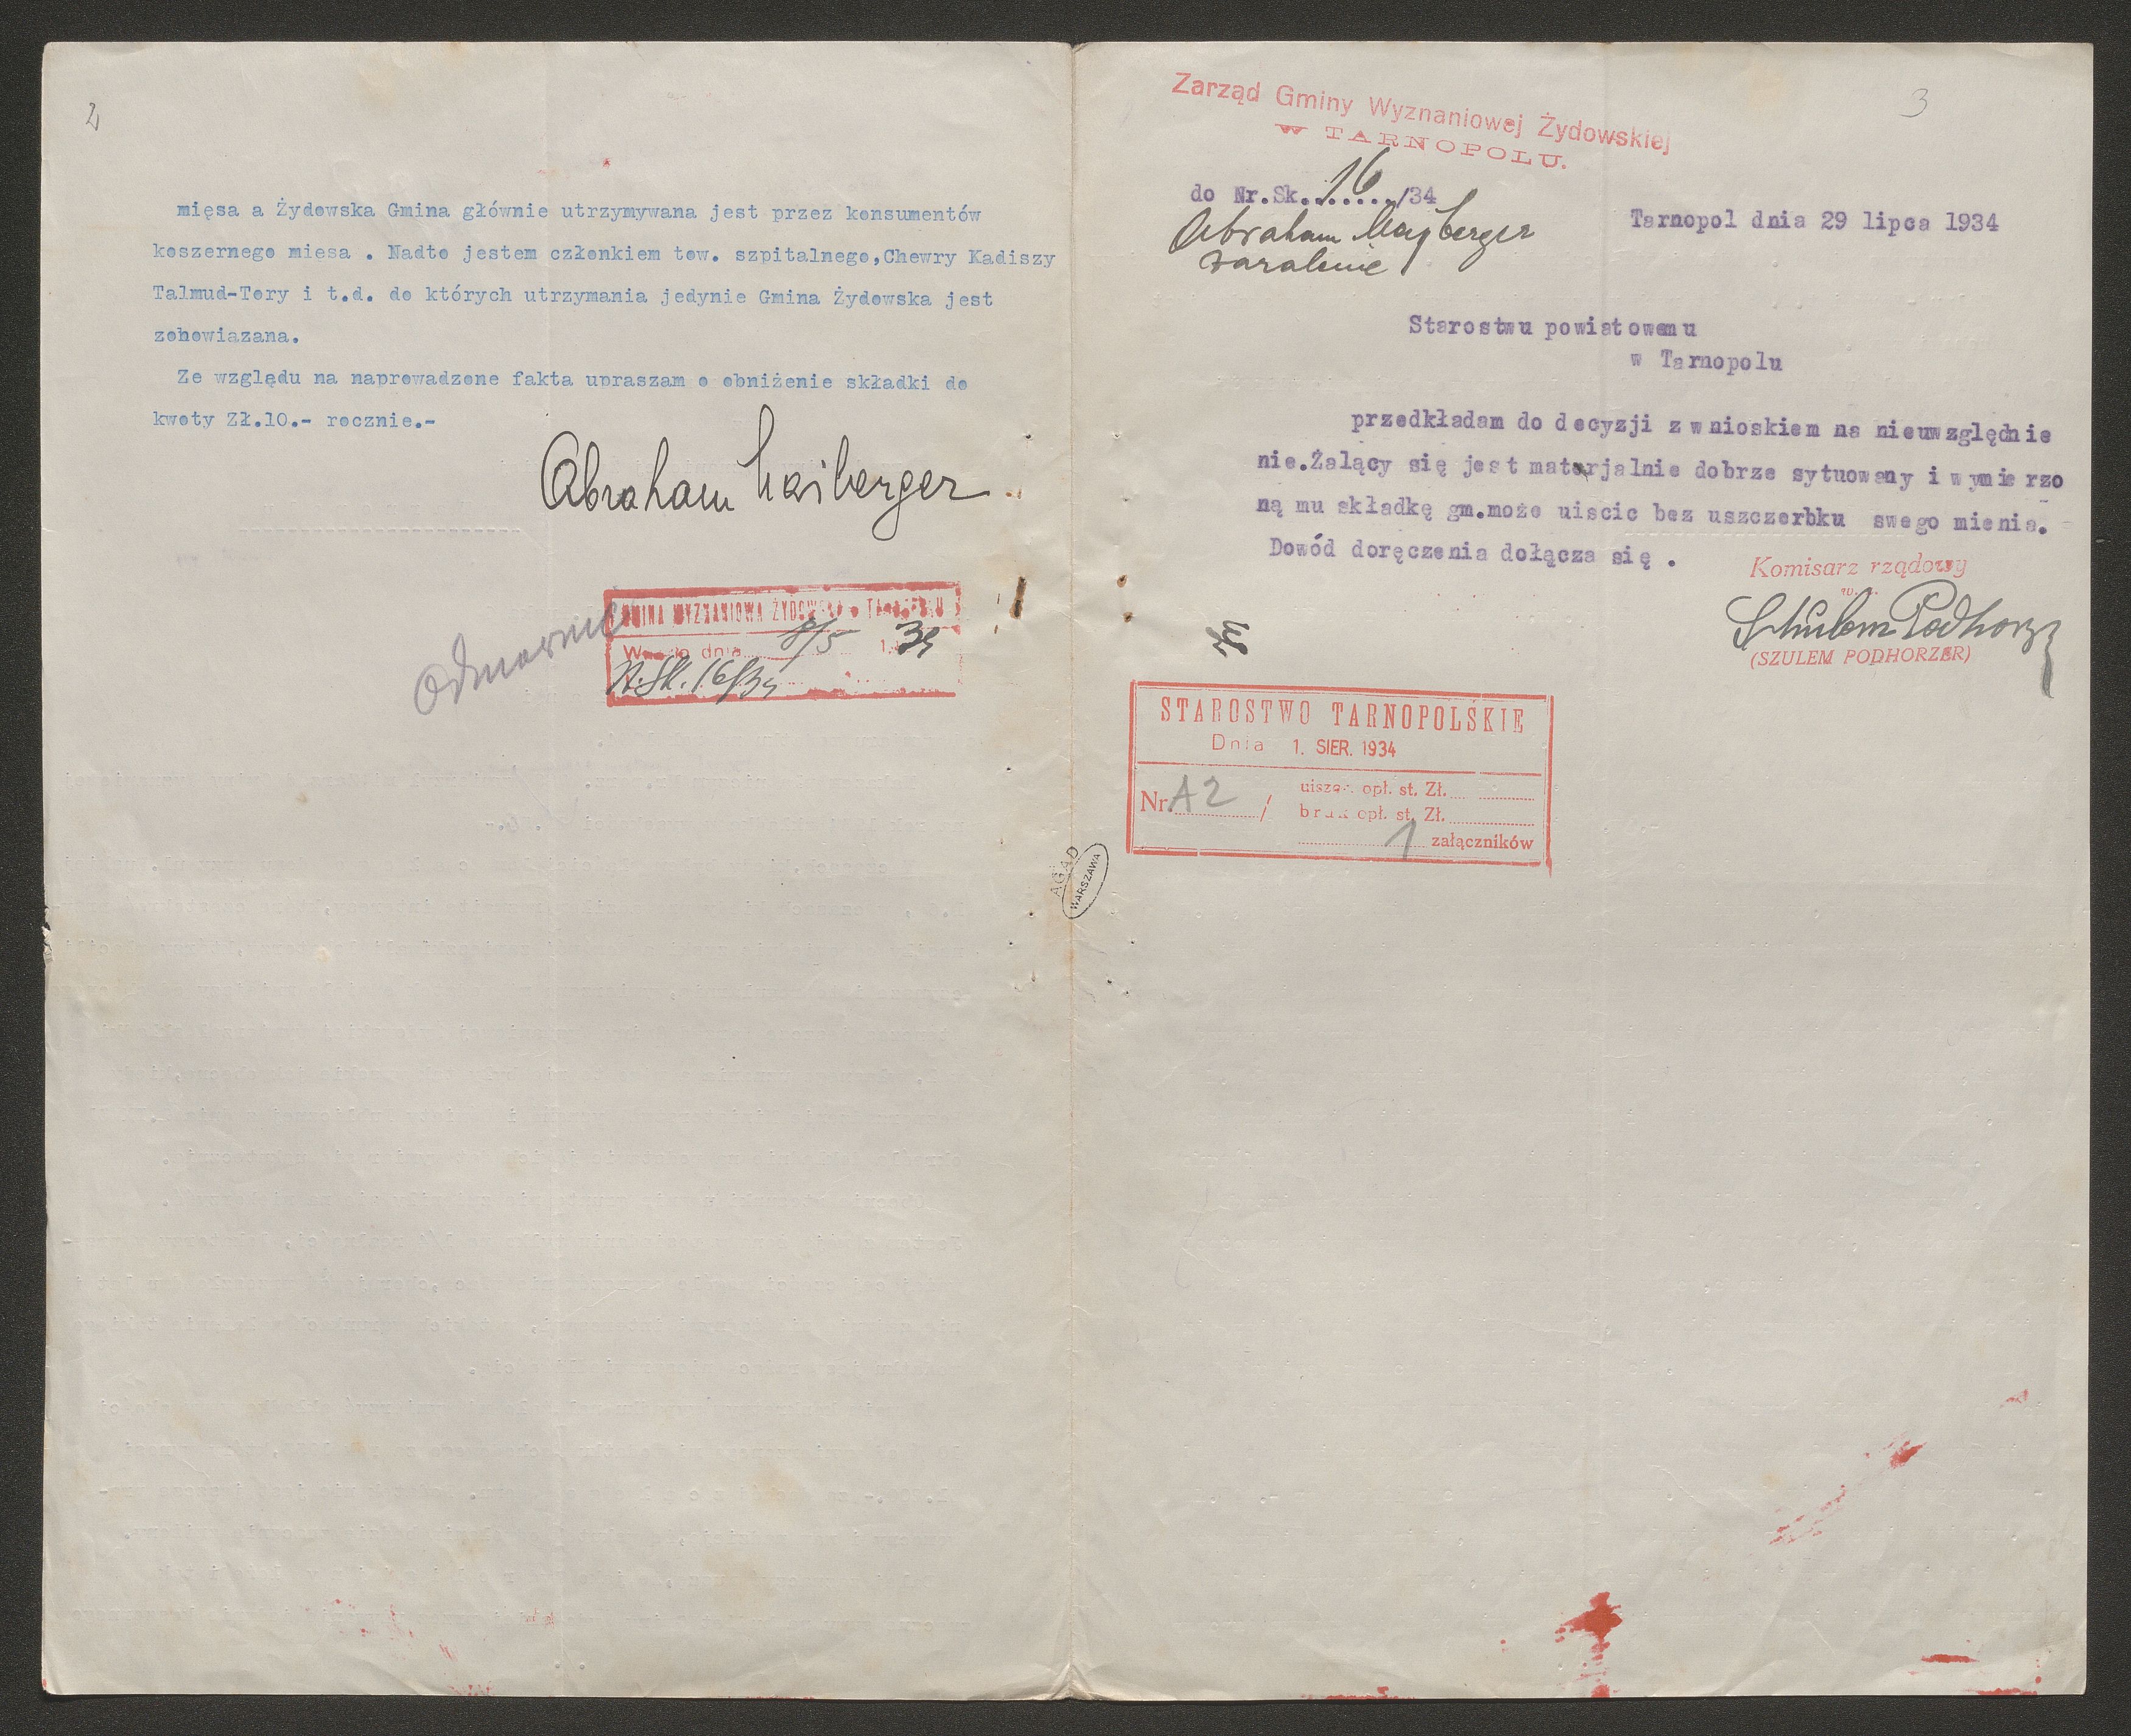 2
mięsa a Żydowska Gmina głównie utrzymywana jest przez konsumentów
koszernego miesa . Nadto jestem członkiem tow. szpitalnego,Chewry Kadiszy
Talmud-Tory i t.d. do których utrzymania jedynie Gmina Żydowska jest
zobowiazana.
Ze względu na naprowadzone fakta upraszam o obniżenie składki do
kwoty Zł.10.- rocznie.-
Abraham Maiberger
GMINA WYZNANIOWA ŻYDOWSKA TARNOPOLU
W dnia 8/5 34
N.Sk. 16/34
3
Zarząd Gminy Wyznaniowej Żydowskiej
W TARNOPOLU.
do Nr.Sk. 16 /34
Abraham Mayberger
Tarnopol dnia 29 lipca 1934
Starostwu powiatowemu
w Tarnopolu
przedkładam do decyzji z wnioskiem na nieuwzględnie
nie.Żalący się jest materjalnie dobrze sytuowany i wymierzo
ną mu składkę gm.może uiscic bez uszczerbku swego mienia.
Dowód doręczenia dołącza się .
Komisarz rządowy
Schulem Podhorzer
(SZULEM PODHORZER)
34
STAROSTWO TARNOPOLSKIE
Dnia 1. SIER. 1934
Nr. A2 /
uiszcz. opł. st. Zł.
brak opł. st. Zł.
1 załączników
AGAD
WARSZAWA